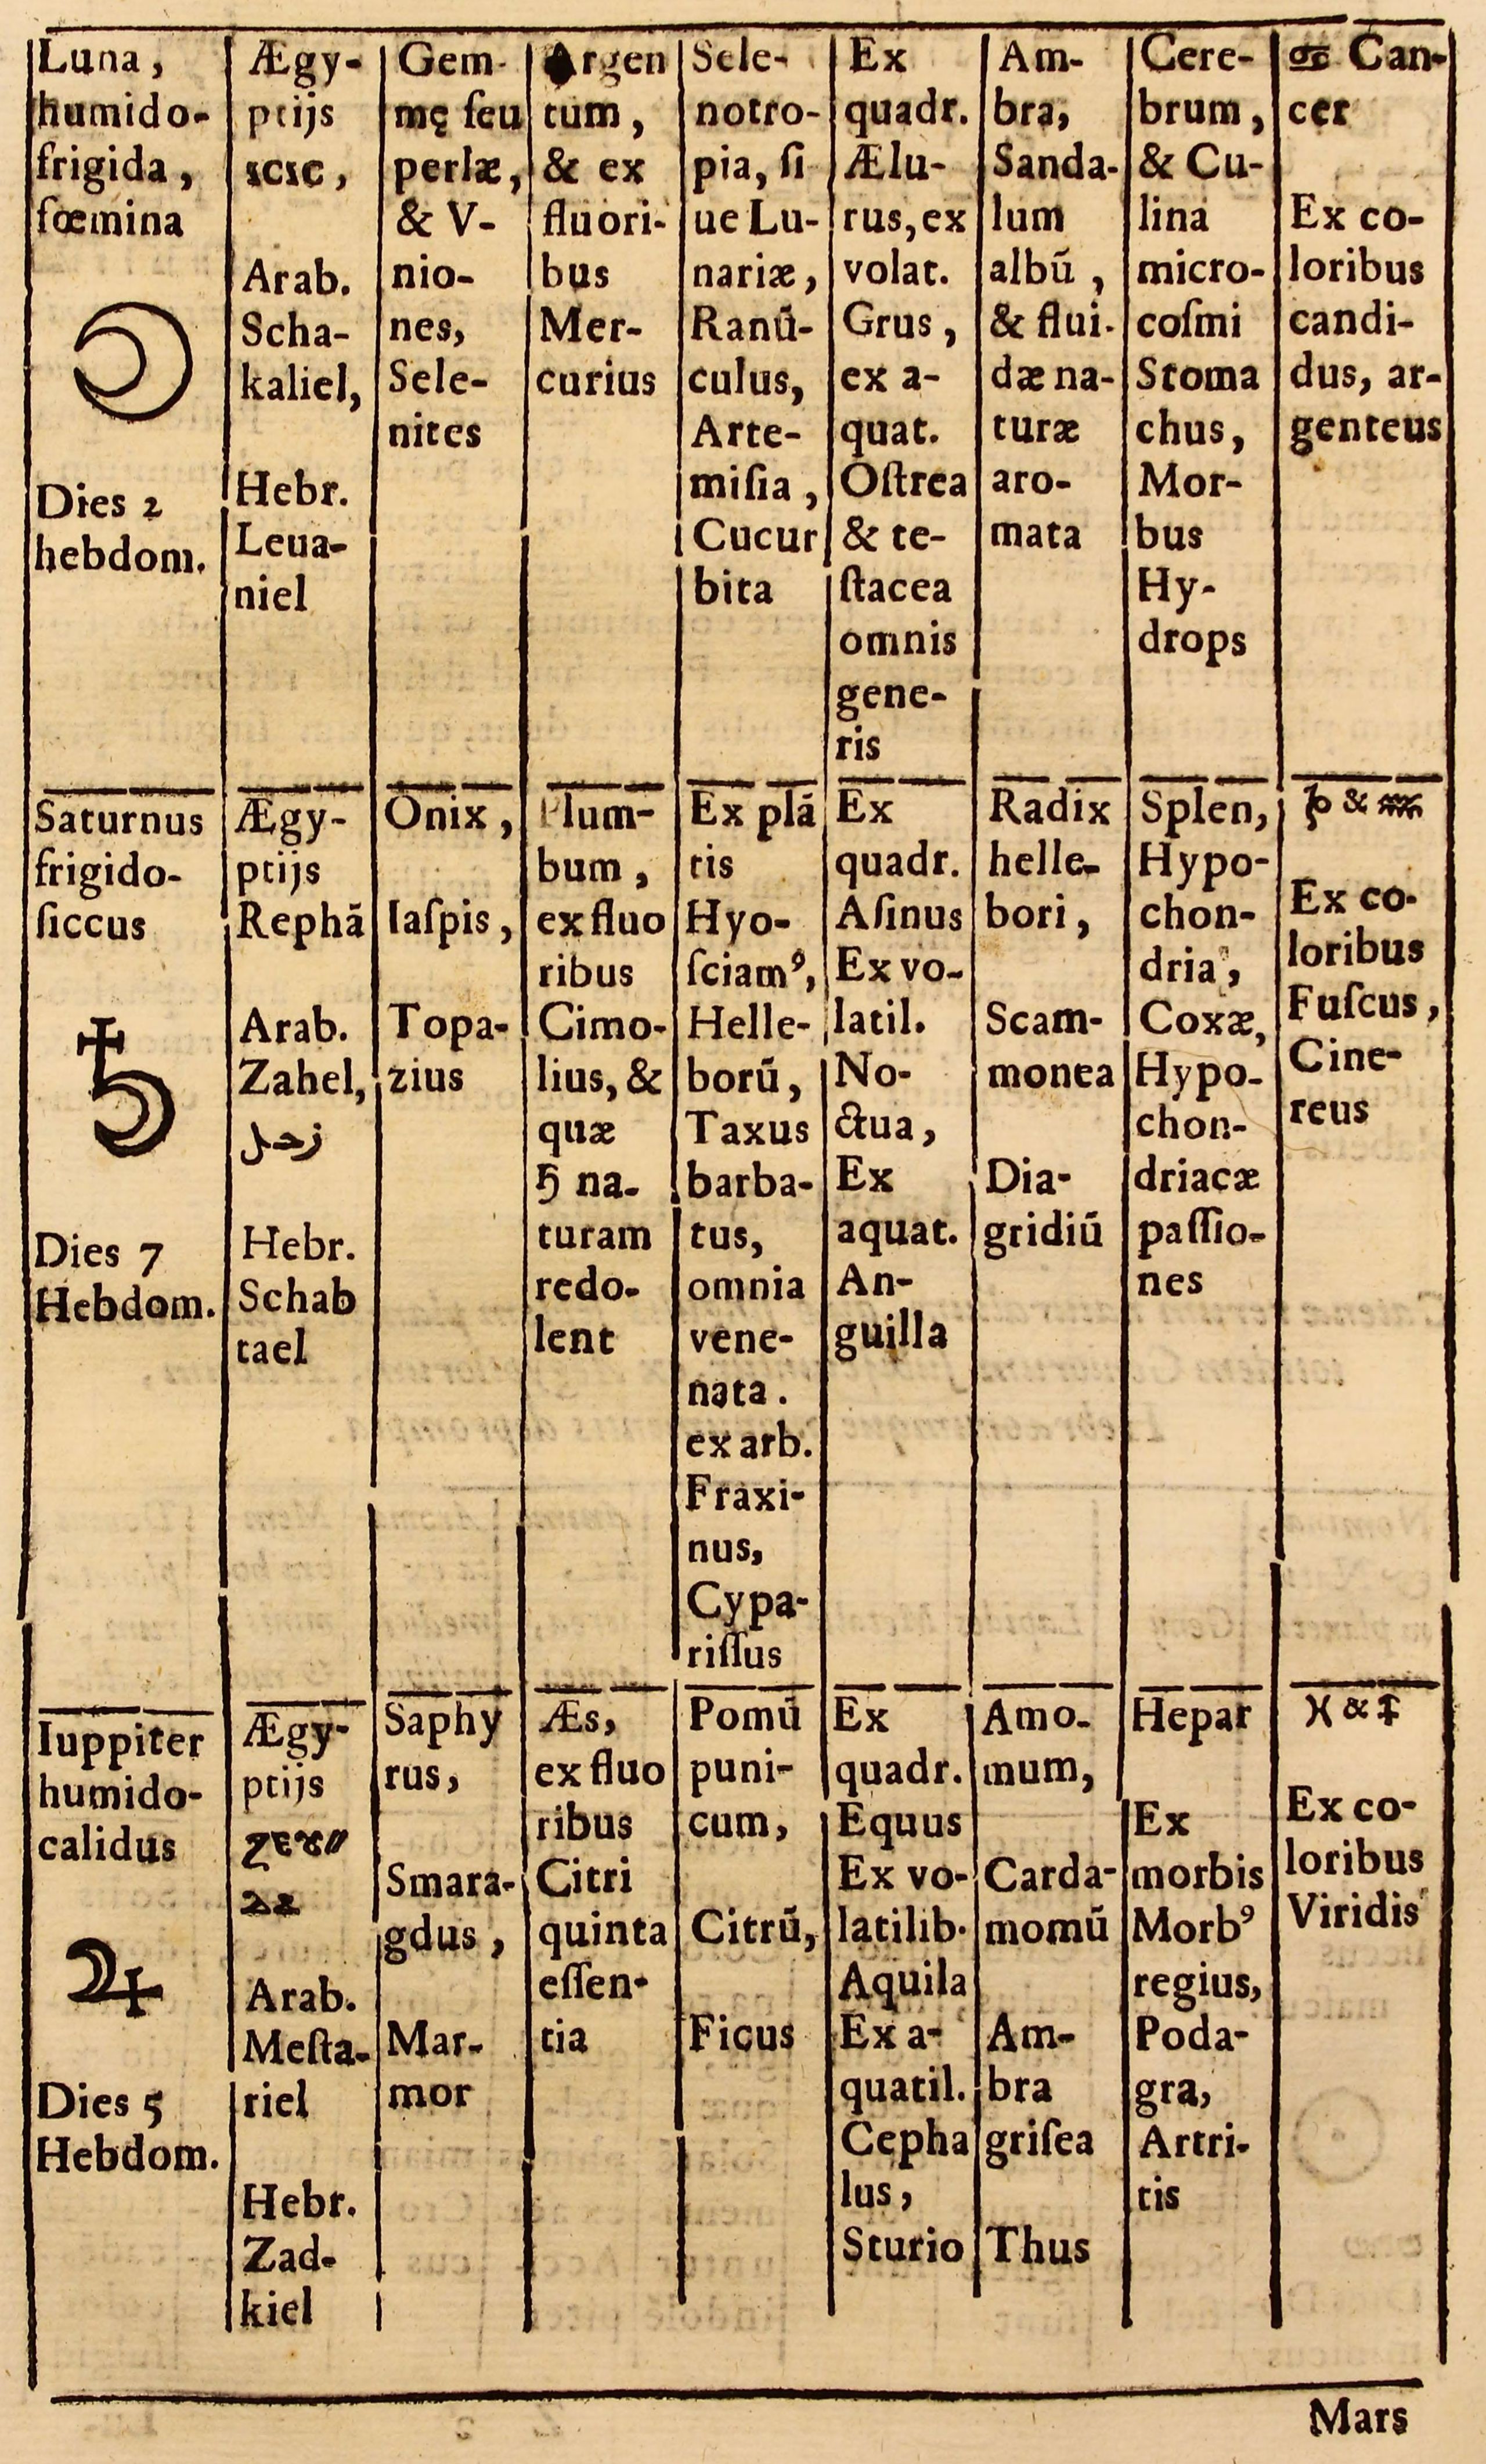 Luna,
humido-
frigida,
fœmina
☽
Dies 2
hebdom.
Ægy-
ptijs
Arab.
Scha-
kaliel,
Hebr.
Leua-
niel
Gem-
mę ſeu
perlæ,
& V-
nio-
nes,
Sele-
nites
Argen
tum,
& ex
fluori-
bus
Mer-
curius
Sele-
notro-
pia, ſi
ue Lu-
nariæ,
Ranū-
culus,
Arte-
miſia,
Cucur
bita
Ex
quadr.
Ælu-
rus, ex
volat.
Grus,
ex a-
quat.
Oſtrea
& te-
ſtacea
omnis
gene-
ris
Am-
bra,
Sanda-
lum
albū,
& flui-
dæ na-
turæ
aro-
mata
Cere-
brum,
& Cu-
lina
micro-
coſmi
Stoma
chus,
Mor-
bus
Hy-
drops
♋ Can-
cer
Ex co-
loribus
candi-
dus, ar-
genteus
Saturnus
frigido-
ſiccus
♄
Dies 7
Hebdom.
Ægy-
ptijs
Rephā
Arab.
Zahel,
زحل
Hebr.
Schab
tael
Onix,
Iaſpis,
Topa-
zius
Plum-
bum,
ex fluo
ribus
Cimo-
lius, &
quæ
♄ na-
turam
redo-
lent
Ex plā
tis
Hyo-
ſciamꝰ,
Helle-
borū,
Taxus
barba-
tus,
omnia
vene-
nata.
ex arb.
Fraxi-
nus,
Cypa-
riſſus
Ex
quadr.
Aſinus
Ex vo-
latil.
No-
ctua,
Ex
aquat.
An-
guilla
Radix
helle-
bori,
Scam-
monea
Dia-
gridiū
Splen,
Hypo-
chon-
dria,
Coxæ,
Hypo-
chon-
driacæ
paſſio-
nes
♑ & ♒
Ex co-
loribus
Fuſcus,
Cine-
reus
Iuppiter
humido-
calidus
♃
Dies 5
Hebdom.
Ægy-
ptijs
Arab.
Meſta-
riel
Hebr.
Zad-
kiel
Saphy
rus,
Smara-
gdus,
Mar-
mor
Æs,
ex fluo
ribus
Citri
quinta
eſſen-
tia
Pomū
puni-
cum,
Citrū,
Ficus
Ex
quadr.
Equus
Ex vo-
latilib.
Aquila
Ex a-
quatil.
Cepha
lus,
Sturio
Amo-
mum,
Carda-
momū
Am-
bra
griſea
Thus
Hepar
Ex
morbis
Morbꝰ
regius,
Poda-
gra,
Artri-
tis
♓ & ♐
Ex co-
loribus
Viridis
Mars